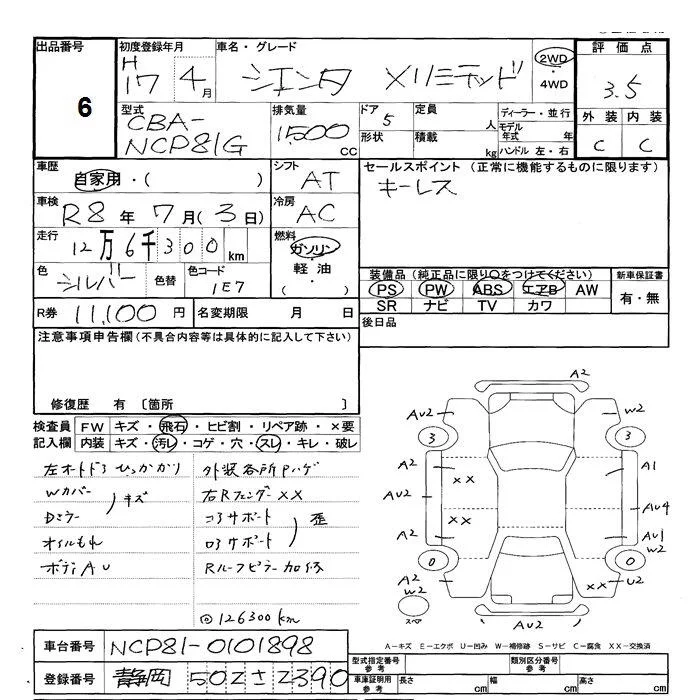 出品番号 6
初度登録年月 H 17 4月
車名・グレード シエンタ Xリミテッド
2WD・4WD
評価点 3.5
外装 内装
C C
型式 CBA-NCP81G
排気量 1500 CC
ドア 5 定員 人
形状 積載 kg
ディーラー・並行
モデル年式 年
ハンドル 左・右
車歴 自家用・( )
シフト AT
セールスポイント (正常に機能するものに限ります)
キーレス
車検 R8年 7月(3日)
冷房 AC
走行 12万6千300km
燃料 ガソリン・軽油・( )
色 シルバー 色替 色コード 1E7
装備品(純正品に限り○をつけてください) 新車保証書
PS PW ABS エアB AW 有・無
SR ナビ TV カワ
R券 11,100円 名変期限 月 日
後日品
注意事項申告欄(不具合内容等は具体的に記入して下さい)
修復歴 有 〔箇所 〕
検査員 FW キズ・飛石・ヒビ割・リペア跡・×要
記入欄 内装 キズ・汚レ・コゲ・穴・スレ・キレ・破レ
左オートドアひっかかり 外装各所Pハゲ
Wカバー キズ 右RフェンダーXX
Dミラー コアサポート 歪
オイルもれ ロアサポート
ボディAU Rルーフピラー加修
◎126300km
A2
AU2 W2
3 3
A2 XX A1
AU2 XX AU4
A2 AU1 W2
0 0
A2 W2 XX U2
スペア AU2
A-キズ E-エクボ U-凹み W-補修跡 S-サビ C-腐食 XX-交換済
車台番号 NCP81-0101898
型式指定番号 参考 類別区分番号 参考
登録番号 静岡 502 さ 2390
車庫証明用 参考 長さ cm 幅 cm 高さ cm